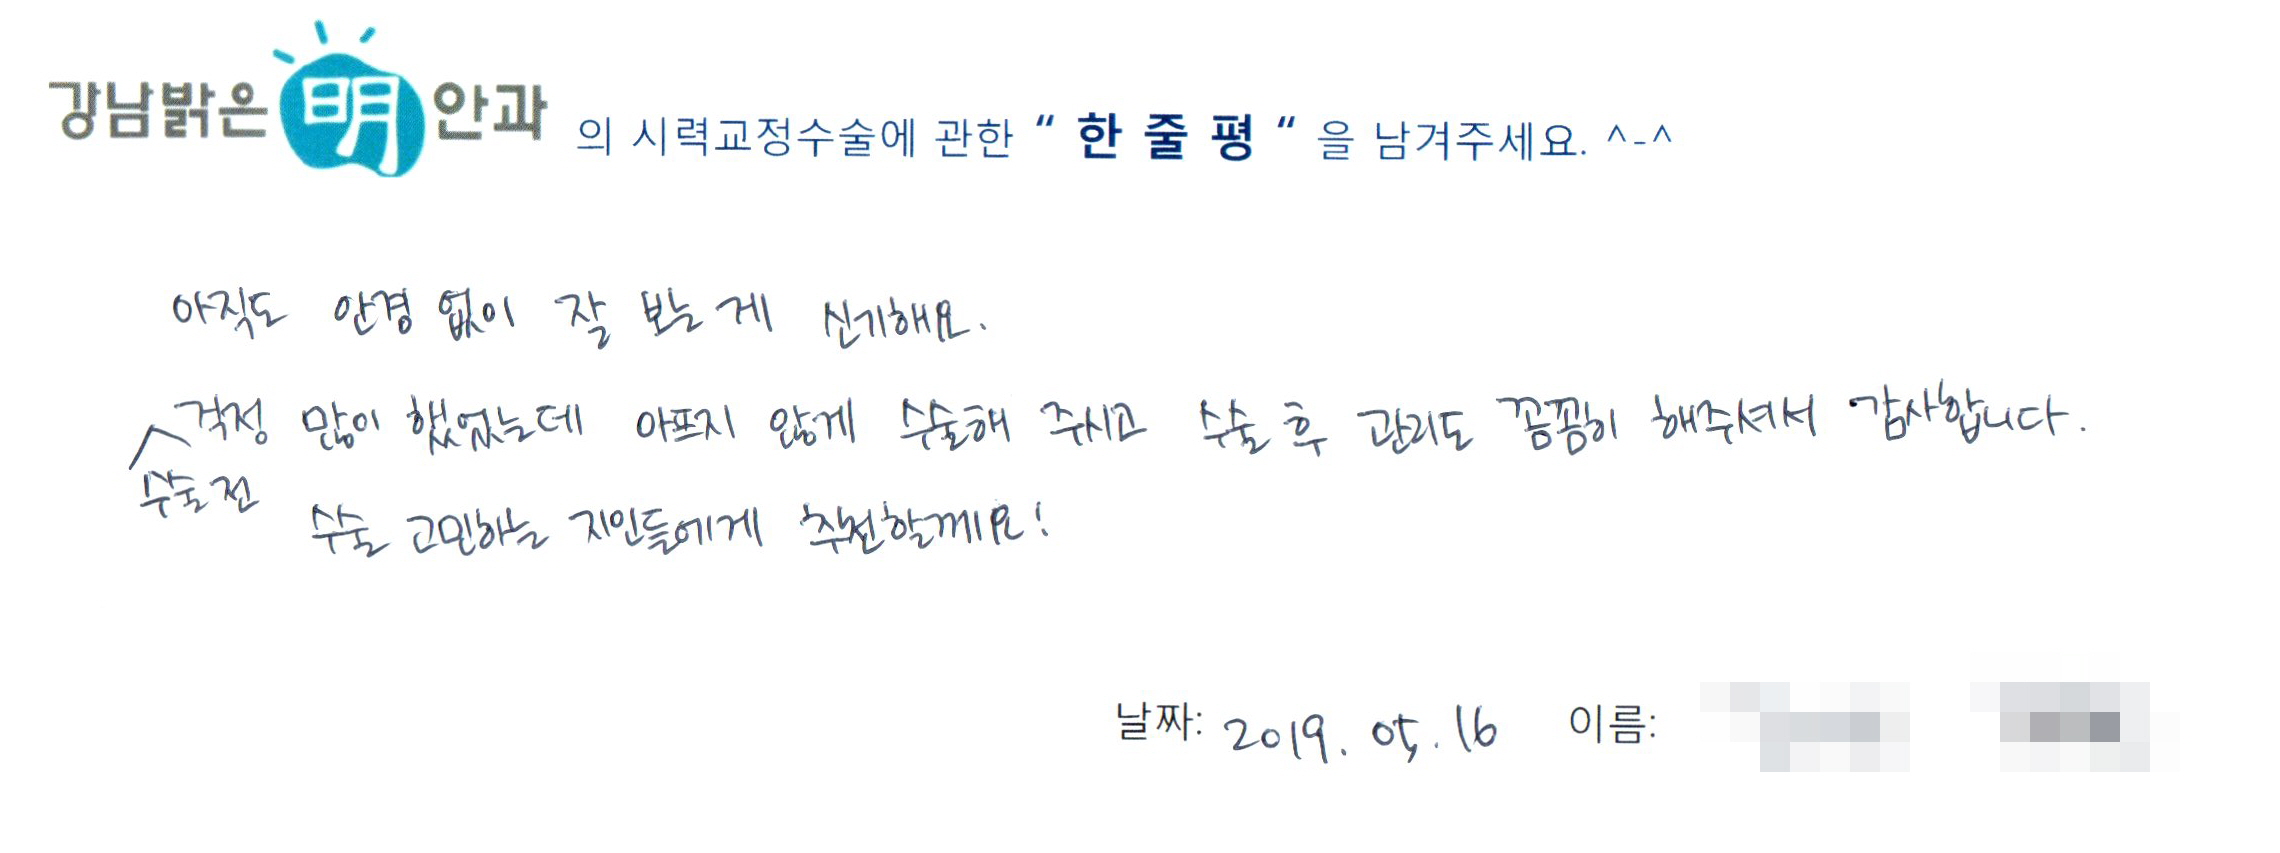 강남밝은 明 안과 의 시력교정수술에 관한 “ 한 줄 평 “ 을 남겨주세요. ^-^
아직도 안경 없이 잘 보는 게 신기해요.
걱정 많이 했었는데 아프지 않게 수술해 주시고 수술 후 관리도 꼼꼼히 해주셔서 감사합니다.
수술 전
수술 고민하는 지인들에게 추천할께요!
날짜: 2019. 05. 16 이름: